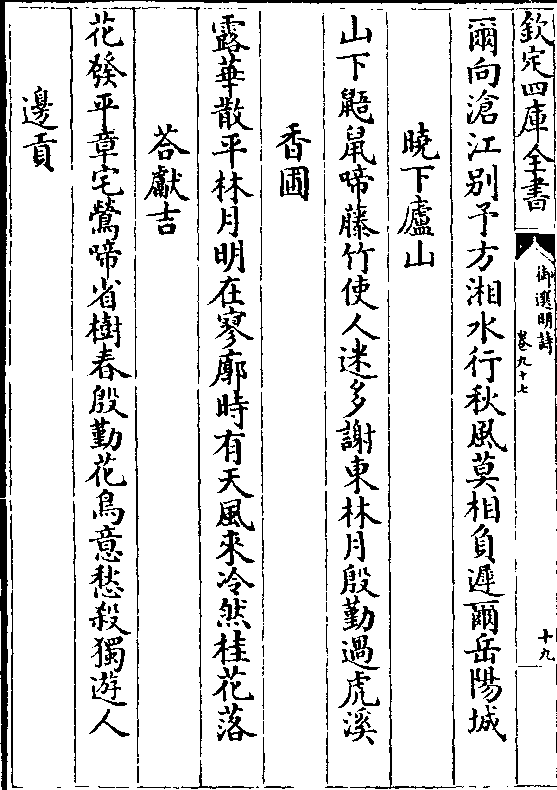 欽定四庫全書
御選明詩
卷九十七
十九
爾向滄江别予方湘水行秋風莫相負遲爾岳陽城
曉下廬山
山下鼯鼠啼藤竹使人迷多謝東林月殷勤過虎溪
香圃
露華散平林月明在寥廓時有天風來冷然桂花落
荅獻吉
花發平章宅鶯啼省樹春殷勤花鳥意愁殺獨遊人
邊貢